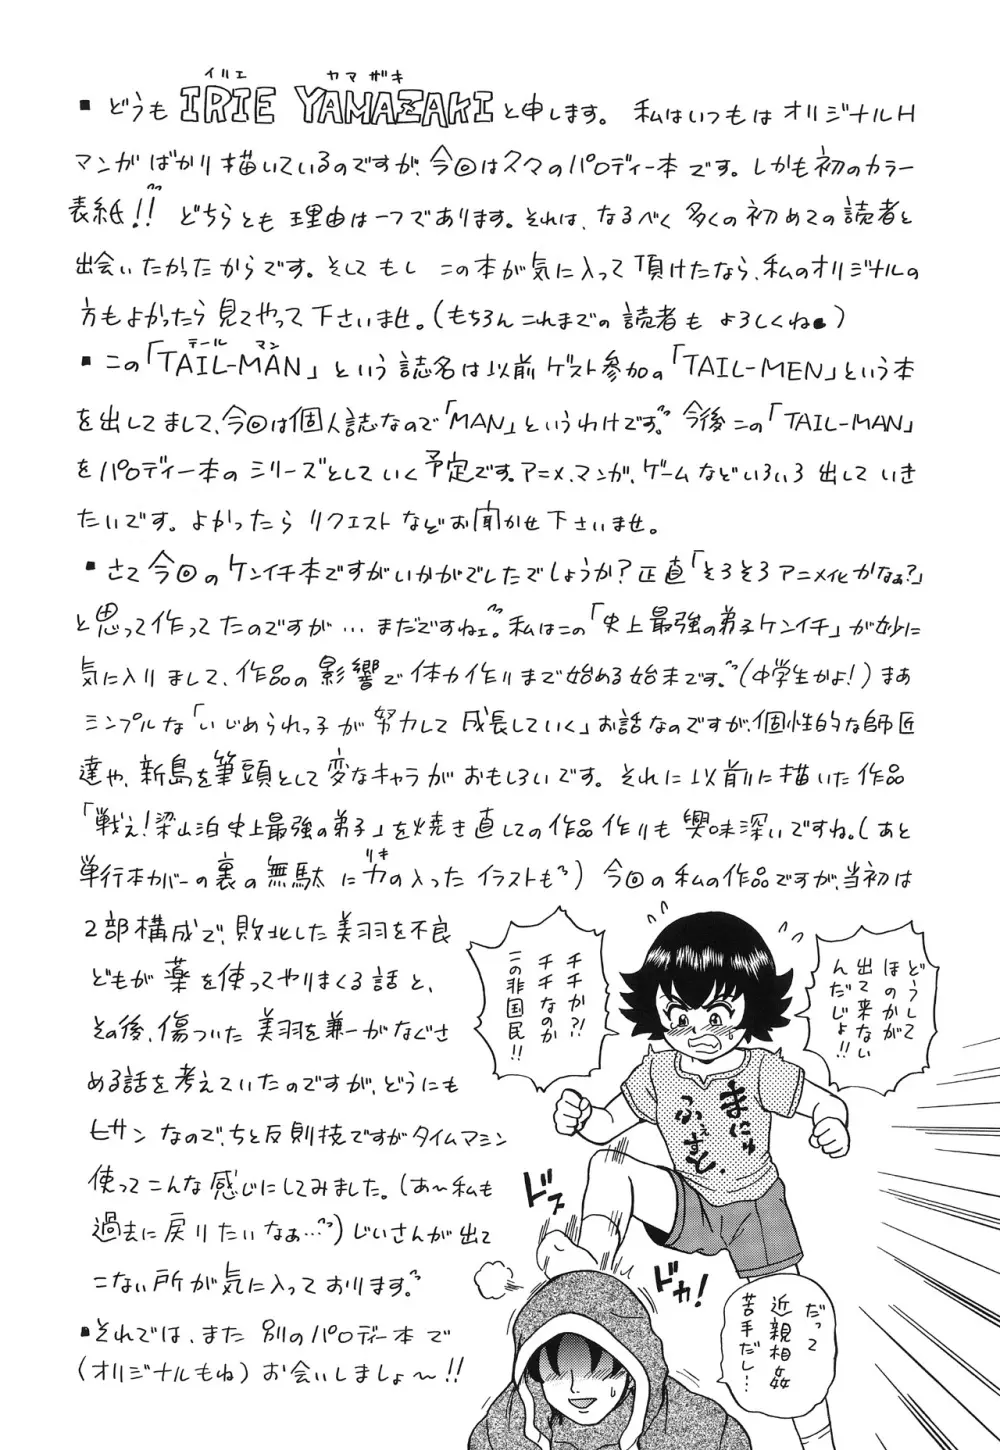 イルエ ヤマザキ
▪ どうも IRIE YAMAZAKI と申します。 私はいつもは オリジナルH
マンガばかり描いているのですが、今回は久々のパロディー本です。しかも初のカラー
表紙!! どちらとも理由は一つであります。それは、なるべく多くの初めての読者と
出会いたかったからです。そしてもし この本が気に入って頂けたなら、私のオリジナルの
方もよかったら見てやって下さいませ。(もちろんこれまでの読者も よろしくね)
テール マン
▪ この「TAIL-MAN」という誌名は以前ゲスト参加の「TAIL-MEN」という本
を出してまして、今回は個人誌なので「MAN」というわけです。今後この「TAIL-MAN」
をパロディー本のシリーズとしていく予定です。アニメ、マンガ、ゲームなどいろいろ出していき
たいです。よかったらリクエストなどお聞かせ下さいませ。
▪ さて今回のケンイチ本ですがいかがでしたでしょうか?正直「そろそろアニメ化かなぁ?」
と思って作ってたのですが…まだですねェ。私はこの「史上最強の弟子ケンイチ」が妙に
気に入りまして、作品の影響で体力作りまで始める始末です。(中学生かよ!)まあ
シンプルな「いじめられっ子が努力して成長していく」お話なのですが、個性的な師匠
達や、新島を筆頭として変なキャラがおもしろいです。それに以前に描いた作品
「戦え!梁山泊史上最強の弟子」を焼き直しての作品作りも興味深いですね。(あと
リキ
単行本カバーの裏の無駄に力の入ったイラストも) 今回の私の作品ですが、当初は
2部構成で、敗北した美羽を不良
どもが薬を使ってやりまくる話と、
その後、傷ついた美羽を兼一がなぐさ
める話を考えていたのですが、どうにも
ヒサンなので、ちと反則技ですがタイムマシン
使ってこんな感じにしてみました。(あ〜私も
過去に戻りたいなぁ…)じいさんが出て
こない所が気に入っております。
▪ それでは、また別のパロディー本で
(オリジナルもね)お会いしましょ〜!!
どうして
ほのかが
出て来ない
んだじょ!!
チチか?!
チチなのか
この非国民!!
まにゅ
ふぇすと、
ドズ
ドカ!
だって
近親相姦
苦手だし…